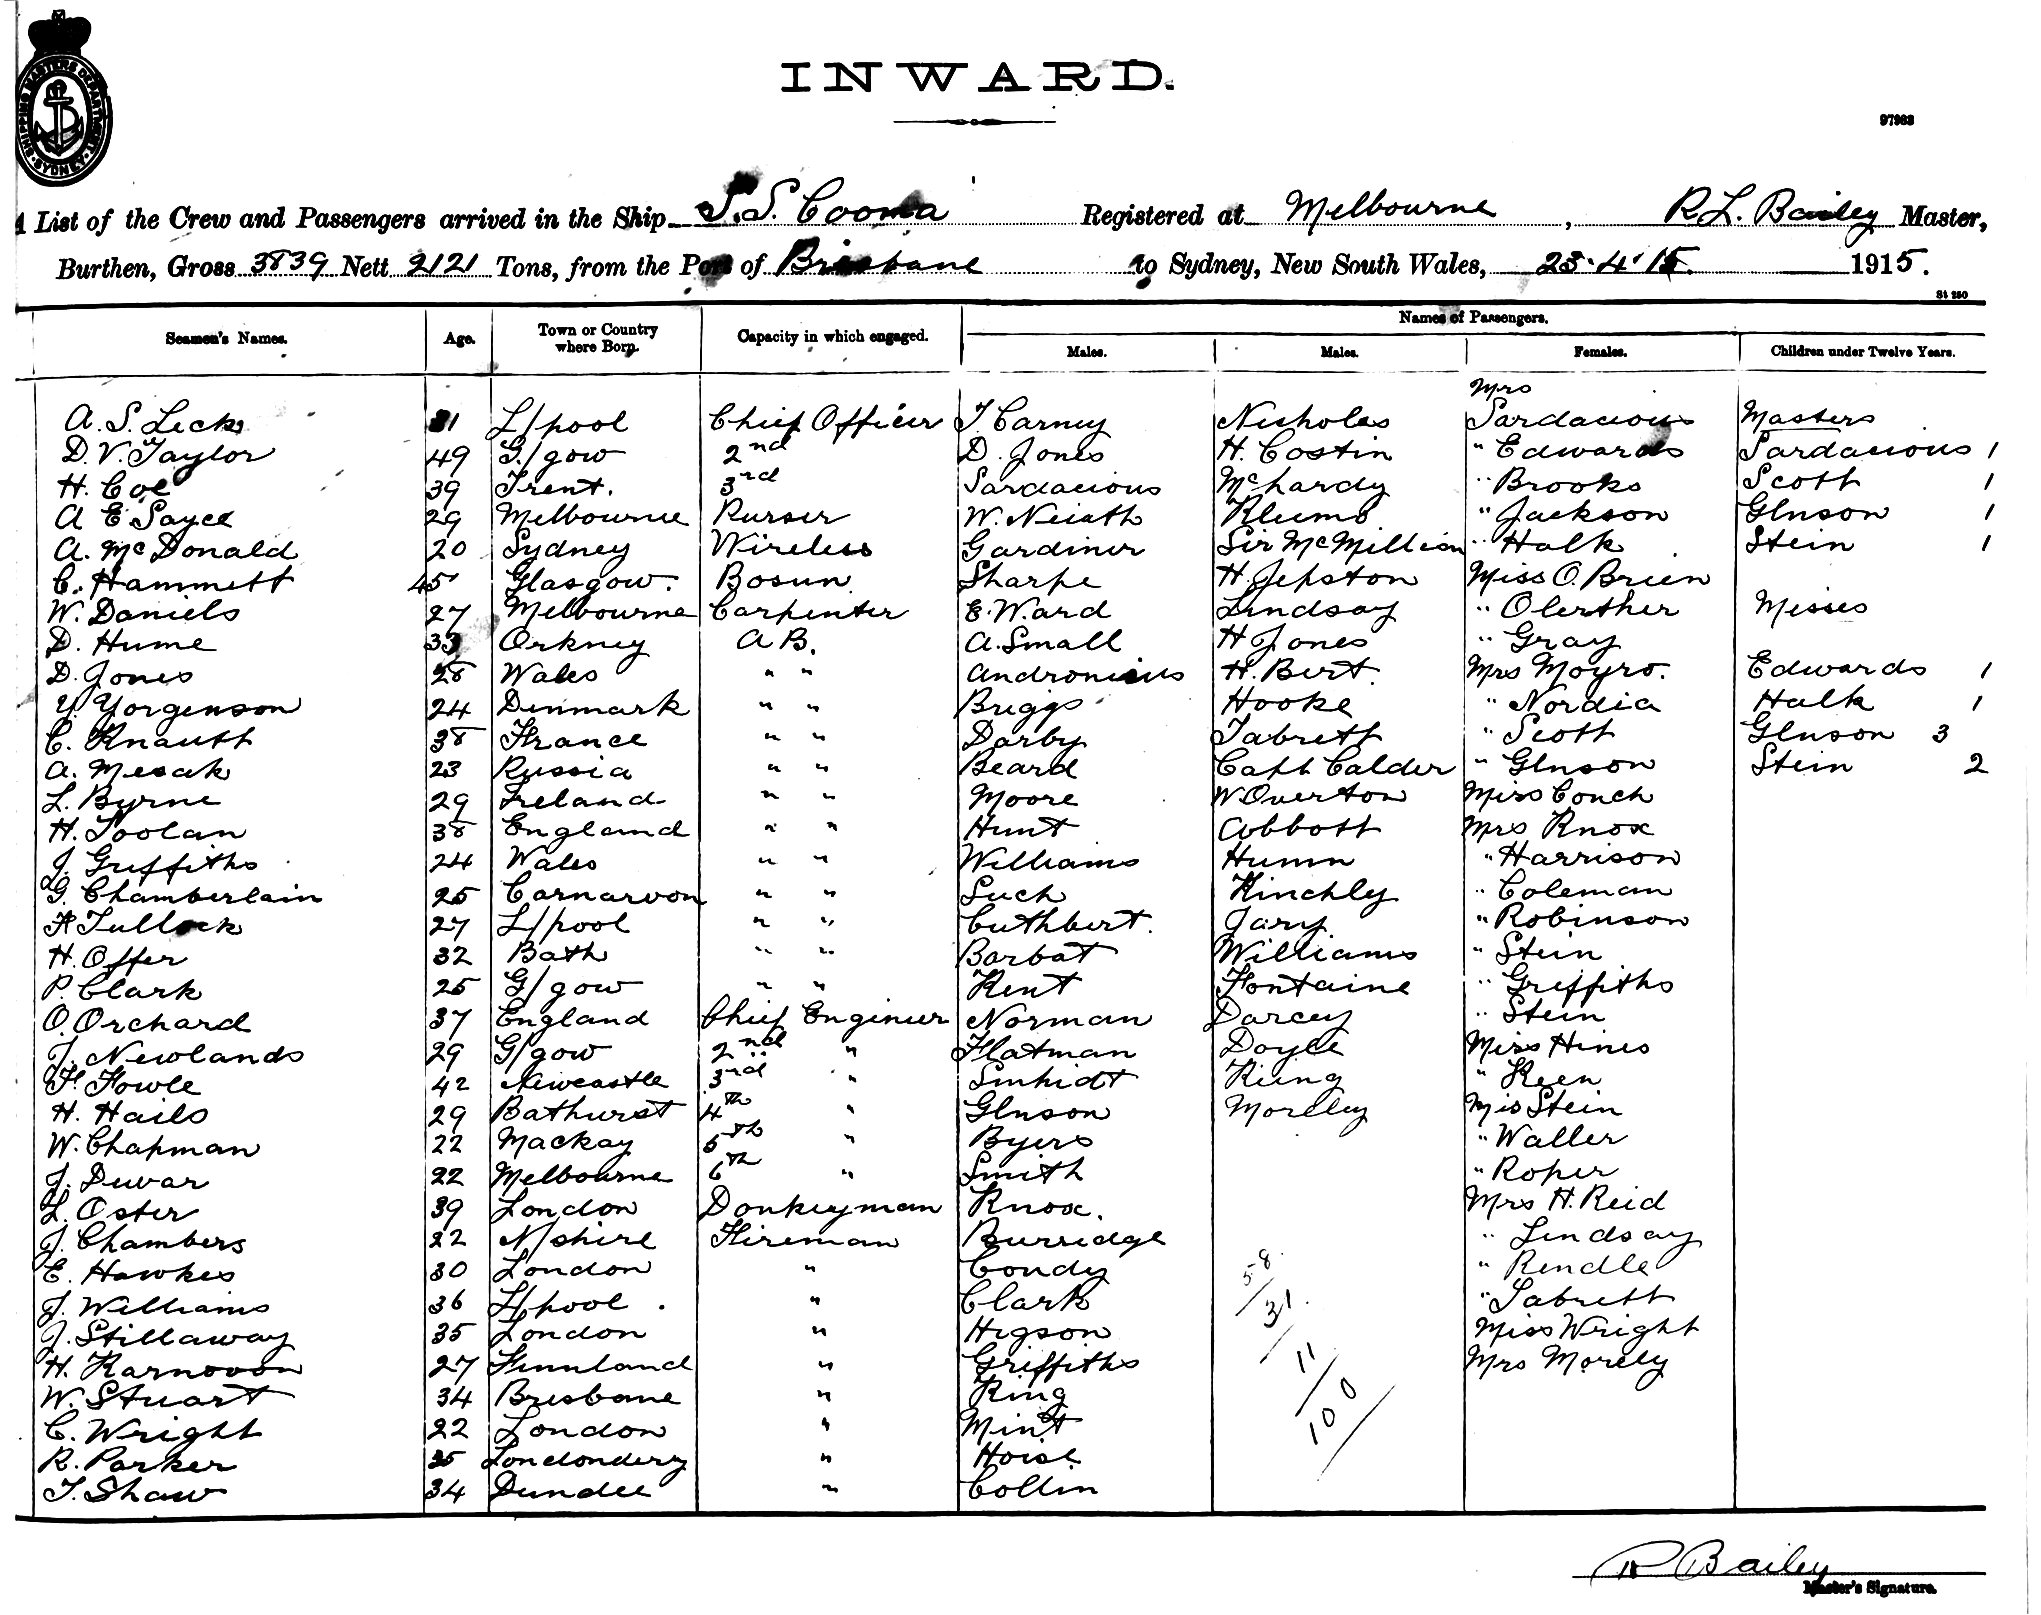 SHIPPING MASTERS DEPARTMENT. SYDNEY.
INWARD.
97983
A List of the Crew and Passengers arrived in the Ship S.S. Cooma Registered at Melbourne, R L. Bailey Master,
Burthen, Gross 3839 Nett 2121 Tons, from the Port of Brisbane to Sydney, New South Wales, 23.4.15. 1915.
St 250
Seamen's Names. Age. Town or Country where Born. Capacity in which engaged. Names of Passengers.
Males. Males. Females. Children under Twelve Years.
Mrs
A. S. Leck 31 L/pool Chief Officer T. Carney Nicholas Sardacious Masters
D. V. Taylor 49 G/gow 2nd D. Jones H. Costin " Edwards Sardacious 1
H. Coe 39 Trent. 3rd Sardacious McHardy " Brooks Scott 1
A E Sayce 29 Melbourne Purser W. Neiath Klumb " Jackson Glnson 1
A. McDonald 20 Sydney Wireless Gardiner Sir McMillian " Halk Stein 1
C. Hammett 45 Glasgow. Bosun Sharpe H. Jepston Miss O. Brien
W. Daniels 27 Melbourne Carpenter E. Ward Lindsay " Olerther Misses
D. Hume 33 Orkney A B. A. Small H Jones " Gray
D. Jones 28 Wales " " Andronicus H. Bert. Mrs Moyro. Edwards 1
Y. Yorgenson 24 Denmark " " Briggs Hooke " Nordia Halk 1
C. Knautt 38 France " " Darby Tabrett " Scott Glnson 3
A. Mesak 23 Russia " " Beard Capt Calder " Glnson Stein 2
L. Byrne 29 Ireland " " Moore W Overton Miss Couch
H. Toolan 38 England " " Hunt Abbott Mrs Knox
J. Griffiths 24 Wales " " Williams Humn " Harrison
G. Chamberlain 25 Carnarvon " " Such Hinchley " Coleman
F Tullock 27 L/pool " " Cuthbert. Jary " Robinson
H. Offer 32 Bath " " Barbat Williams " Stein
P. Clark 25 G/gow " " Kent Fontaine " Griffiths
O. Orchard 37 England Chief Engineer Norman Darcey " Stein
J. Newlands 29 G/gow 2nd " Flatman Doyle Miss Hines
F. Fowle 42 Newcastle 3rd " Smhidt King " Keen
H. Hails 29 Bathurst 4th " Glnson Moreley Mis Stein
W. Chapman 22 Mackay 5th " Byers " Waller
J. Dewar 22 Melbourne 6th " Smith " Roper
L. Oster 39 London Donkeyman Knox. Mrs H. Reid
J. Chambers 22 N/shire Fireman Burridge " Lindsay
E. Hawkes 30 London " Condy " Rendle
J. Williams 36 L/pool. " Clark " Tabrett
J. Stillaway 35 London " Higson Miss Wright
H. Karnovon 27 Finnland " Griffiths Mrs Morely
W. Stuart 34 Brisbane " King
C. Wright 22 London " Mint
R. Parker 35 Londondery " Hoise
T. Shaw 34 Dundee " Collin
58/31/11/100
R Bailey
Master's Signature.